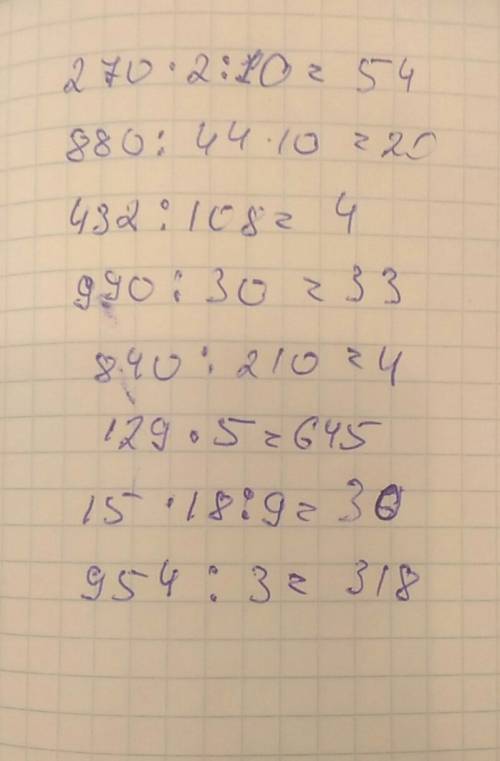 270 · 2 : 10 = 54
880 : 44 · 10 = 20
432 : 108 = 4
990 : 30 = 33
840 : 210 = 4
129 · 5 = 645
15 · 18 : 9 = 30
954 : 3 = 318